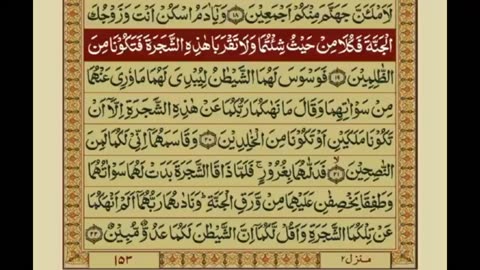 لَاَمْلَـَٔنَّ جَهَنَّمَ مِنْكُمْ اَجْمَعِيْنَ ۝۱۸ وَيٰۤاٰدَمُ اسْكُنْ اَنْتَ وَزَوْجُكَ
الْجَنَّةَ فَكُلَا مِنْ حَيْثُ شِئْتُمَا وَلَا تَقْرَبَا هٰذِهِ الشَّجَرَةَ فَتَكُوْنَا مِنَ
الظّٰلِمِيْنَ ۝۱۹ فَوَسْوَسَ لَهُمَا الشَّيْطٰنُ لِيُبْدِيَ لَهُمَا مَا وٗرِيَ عَنْهُمَا
مِنْ سَوْاٰتِهِمَا وَقَالَ مَا نَهٰىكُمَا رَبُّكُمَا عَنْ هٰذِهِ الشَّجَرَةِ اِلَّاۤ اَنْ
تَكُوْنَا مَلَكَيْنِ اَوْ تَكُوْنَا مِنَ الْخٰلِدِيْنَ ۝۲۰ وَقَاسَمَهُمَاۤ اِنِّيْ لَكُمَا لَمِنَ
النّٰصِحِيْنَ ۝۲۱ فَدَلّٰىهُمَا بِغُرُوْرٍ ۚ فَلَمَّا ذَاقَا الشَّجَرَةَ بَدَتْ لَهُمَا سَوْاٰتُهُمَا
وَطَفِقَا يَخْصِفٰنِ عَلَيْهِمَا مِنْ وَّرَقِ الْجَنَّةِ ؕ وَنَادٰىهُمَا رَبُّهُمَاۤ اَلَمْ اَنْهَكُمَا
عَنْ تِلْكُمَا الشَّجَرَةِ وَاَقُلْ لَّكُمَاۤ اِنَّ الشَّيْطٰنَ لَكُمَا عَدُوٌّ مُّبِيْنٌ ۝۲۲
منزل ۲
۱۵۳